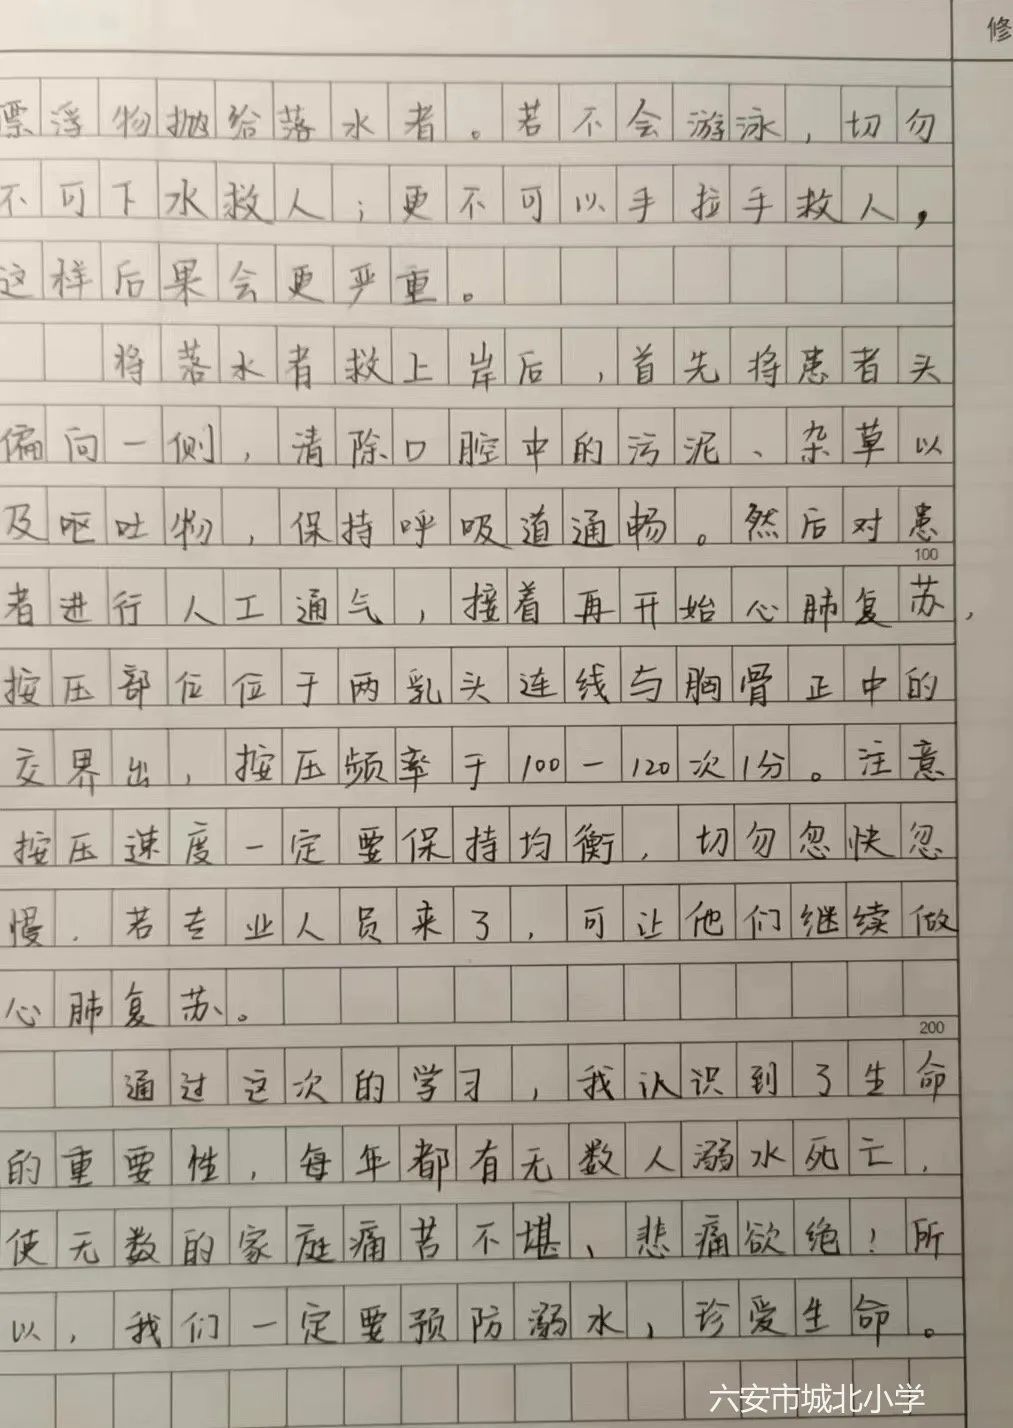 修
漂浮物抛给落水者。若不会游泳，切勿
不可下水救人；更不可以手拉手救人，
这样后果会更严重。
将落水者救上岸后，首先将患者头
偏向一侧，清除口腔中的污泥、杂草以
及呕吐物，保持呼吸道通畅。然后对患
100
者进行人工通气，接着再开始心肺复苏，
按压部位位于两乳头连线与胸骨正中的
交界出，按压频率于100－120次1分。注意
按压速度一定要保持均衡，切勿忽快忽
慢．若专业人员来了，可让他们继续做
心肺复苏。
200
通过这次的学习，我认识到了生命
的重要性，每年都有无数人溺水死亡，
使无数的家庭痛苦不堪、悲痛欲绝！所
以，我们一定要预防溺水，珍爱生命。
六安市城北小学